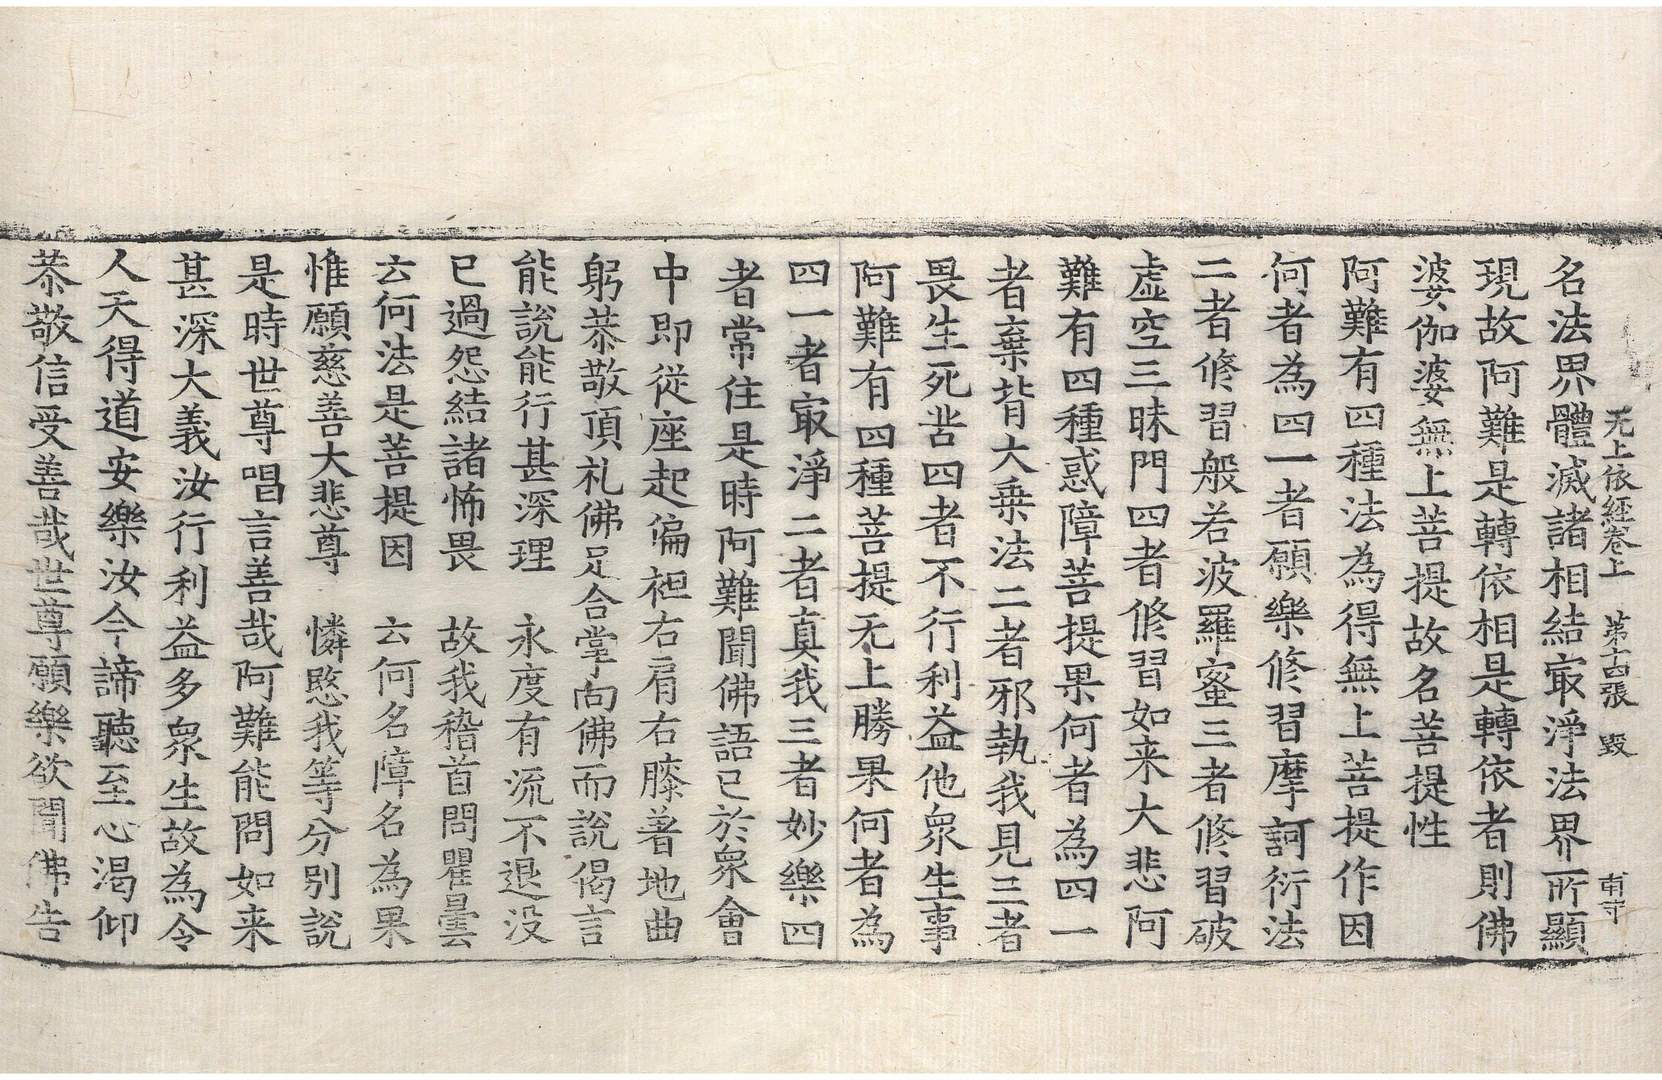 无上依經卷上 第十四張 毀
名法界體滅諸相結㝡淨法界所顯
現故阿難是轉依相是轉依者則佛
婆伽婆無上菩提故名菩提性
阿難有四種法為得無上菩提作因
何者為四一者願樂修習摩訶衍法
二者修習般若波羅蜜三者修習破
虛空三昧門四者修習如来大悲阿
難有四種惑障菩提果何者為四一
者棄背大乗法二者邪執我見三者
畏生死苦四者不行利益他衆生事
阿難有四種菩提无上勝果何者為
四一者㝡淨二者真我三者妙樂四
者常住是時阿難聞佛語已於衆會
中即從座起偏袒右肩右膝著地曲
躬恭敬頂礼佛足合掌向佛而說偈言
能說能行甚深理 永度有流不退没
已過怨結諸怖畏 故我稽首問瞿曇
云何法是菩提因 云何名障名為果
惟願慈善大悲尊 憐愍我等分別說
是時世尊唱言善哉阿難能問如来
甚深大義汝行利益多衆生故為令
人天得道安樂汝今諦聽至心渴仰
恭敬信受善哉世尊願樂欲聞佛告